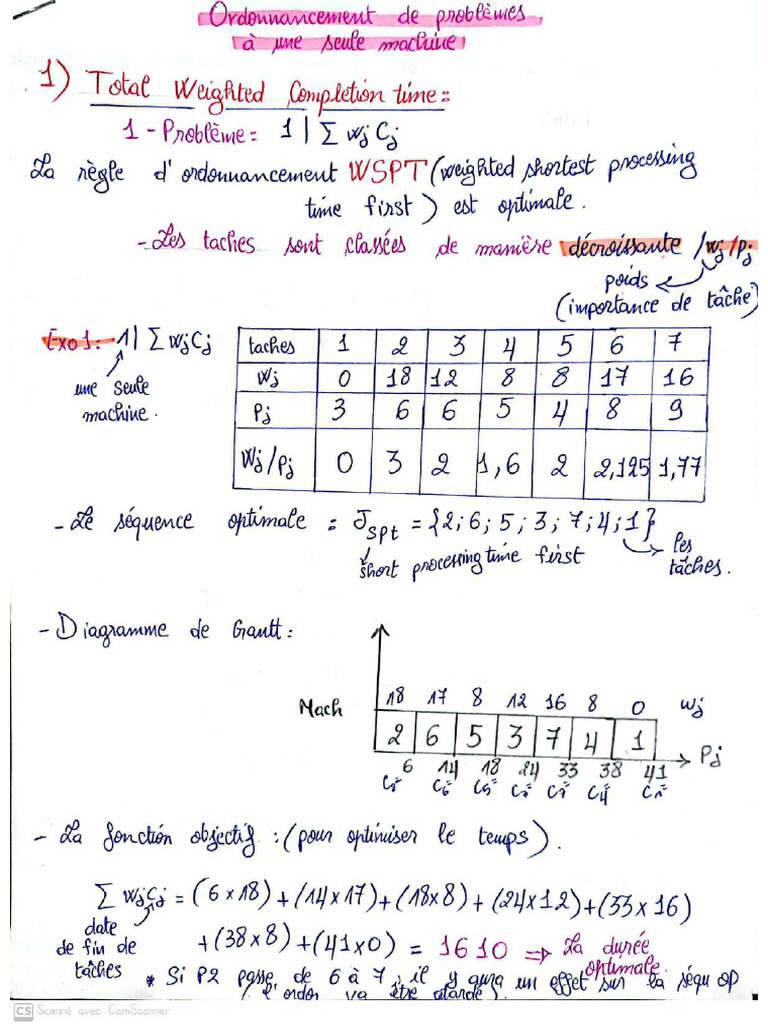 Ordonnancement de problèmes
à une seule machine
1) Total Weighted Completion time:
1 - Problème: 1 | ∑ wj Cj
La règle d'ordonnancement WSPT (weighted shortest processing
time first) est optimale.
- Les taches sont classées de manière décroissante / wj/pj
poids
(importance de tâche)
Exo1: 1 | ∑ wjCj
une seule
machine.
taches 1 2 3 4 5 6 7
Wj 0 18 12 8 8 17 16
Pj 3 6 6 5 4 8 9
Wj/Pj 0 3 2 1,6 2 2,125 1,77
- Le séquence optimale : Jspt = {2; 6; 5; 3; 7; 4; 1}
short processing time first
les
tâches.
- Diagramme de Gantt:
18 17 8 12 16 8 0 wj
Mach 2 6 5 3 7 4 1
Pj
6 14 18 24 33 38 41
- La fonction objectif : (pour optimiser le temps).
∑ WjCj = (6 x 18) + (14 x 17) + (18 x 8) + (24 x 12) + (33 x 16)
+ (38 x 8) + (41 x 0) = 1610 => La durée
optimale.
date
de fin de
tâches
* Si P2 passe de 6 à 7, il y aura un effet sur la séqu op
l'ordon va être
CS Scanné avec CamScanner